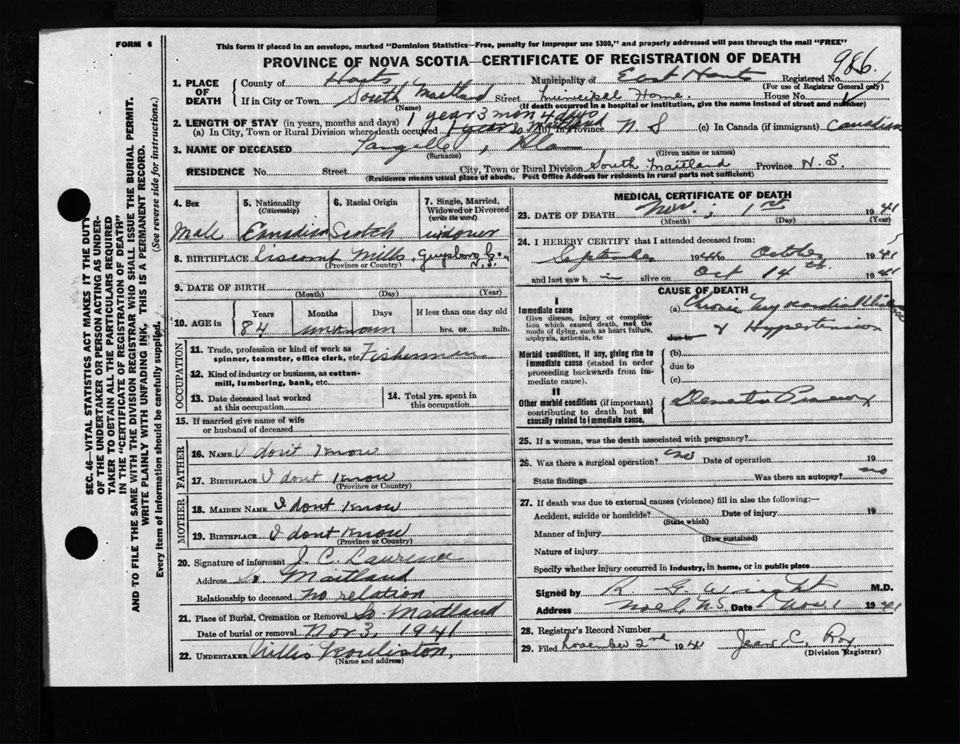 FORM 6
This form if placed in an envelope, marked "Dominion Statistics—Free, penalty for improper use $300," and properly addressed will pass through the mail "FREE"
PROVINCE OF NOVA SCOTIA—CERTIFICATE OF REGISTRATION OF DEATH
986
1. PLACE OF DEATH County of Hants Municipality of East Hants Registered No. (For use of Registrar General only)
If in City or Town South Maitland Street Municipal Home House No.
(Name) (If death occurred in a hospital or institution, give the name instead of street and number)
2. LENGTH OF STAY (in years, months and days) 1 year 3 mon 4 days
(a) In City, Town or Rural Division where death occurred 1 year So Maitland (b) In Province N S (c) In Canada (if immigrant) Canadian
3. NAME OF DECEASED
(Surname) (Given name or names)
RESIDENCE No. Street City, Town or Rural Division South Maitland Province N.S.
(Residence means usual place of abode. Post Office Address for residents in rural parts not sufficient)
4. Sex Male
5. Nationality (Citizenship) Canadian
6. Racial Origin Scotch
7. Single, Married, Widowed or Divorced (write the word) widower
8. BIRTHPLACE Liscomb Mills, Guysboro Co. N.S.
(Province or Country)
9. DATE OF BIRTH (Month) (Day) (Year)
10. AGE in Years 84 Months unknown Days If less than one day old hrs. or min.
OCCUPATION
11. Trade, profession or kind of work as spinner, teamster, office clerk, etc. Fisherman
12. Kind of industry or business, as cotton-mill, lumbering, bank, etc.
13. Date deceased last worked at this occupation
14. Total yrs. spent in this occupation
15. If married give name of wife or husband of deceased
FATHER
16. NAME I dont Know
17. BIRTHPLACE I dont Know
(Province or Country)
MOTHER
18. MAIDEN NAME I dont Know
19. BIRTHPLACE I dont Know
(Province or Country)
20. Signature of informant J. C. Lawrence
Address So Maitland
Relationship to deceased no relation
21. Place of Burial, Cremation or Removal So Maitland
Date of burial or removal Nov 3, 1941
22. UNDERTAKER Willis
(Name and address)
MEDICAL CERTIFICATE OF DEATH
23. DATE OF DEATH Nov, 1st 1941
(Month) (Day) (Year)
24. I HEREBY CERTIFY that I attended deceased from:
September 1941 to October 1941
and last saw h alive on Oct 14th 1941
CAUSE OF DEATH
I
Immediate cause
Give disease, injury or complication which caused death, not the mode of dying, such as heart failure, asphyxia, asthenia, etc
(a) & Hypertension
due to
Morbid conditions, if any, giving rise to immediate cause (stated in order proceeding backwards from immediate cause).
(b)
due to
(c)
II
Other morbid conditions (if important) contributing to death but not causally related to immediate cause.
25. If a woman, was the death associated with pregnancy?
26. Was there a surgical operation? no Date of operation 19
State findings Was there an autopsy? no
27. If death was due to external causes (violence) fill in also the following:—
Accident, suicide or homicide? Date of injury 19
(State which)
Manner of injury
(How sustained)
Nature of injury
Specify whether injury occurred in industry, in home, or in public place
Signed by R G Wright M.D.
Address Noel, N.S. Date Nov 1 1941
28. Registrar's Record Number
29. Filed November 2nd 1941 Jean C. Roy
(Division Registrar)
SEC. 46—VITAL STATISTICS ACT MAKES IT THE DUTY
OF THE UNDERTAKER OR PERSON ACTING AS UNDER-
TAKER TO OBTAIN ALL THE PARTICULARS REQUIRED
IN THE "CERTIFICATE OF REGISTRATION OF DEATH"
AND TO FILE THE SAME WITH THE DIVISION REGISTRAR WHO SHALL ISSUE THE BURIAL PERMIT.
WRITE PLAINLY WITH UNFADING INK, THIS IS A PERMANENT RECORD.
Every item of information should be carefully supplied. (See reverse side for instructions.)